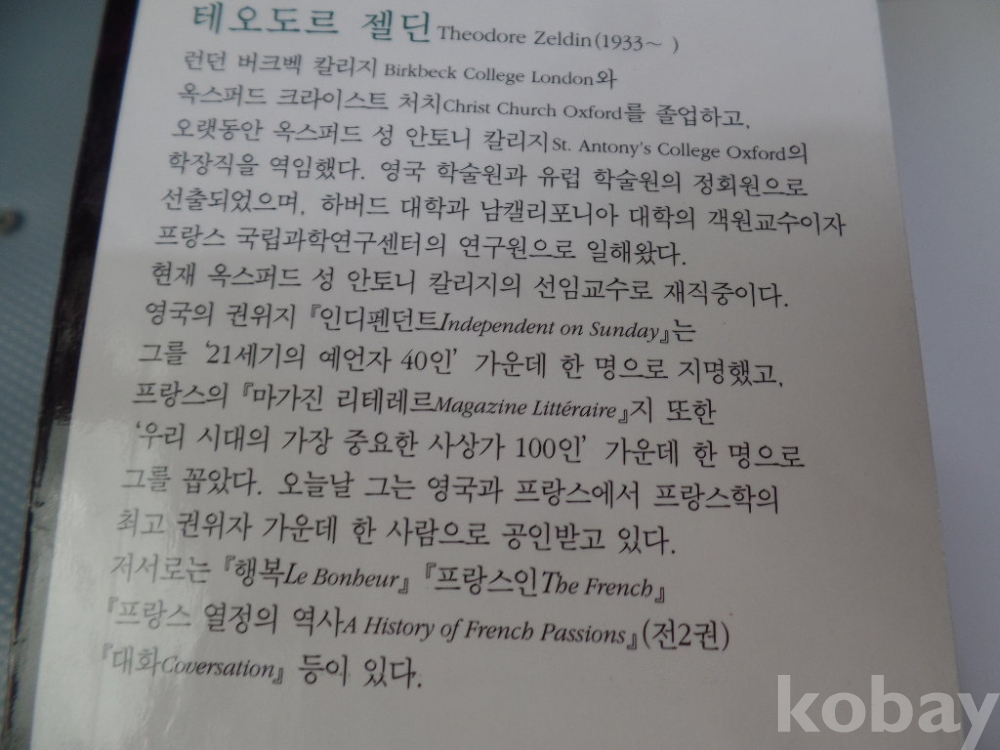 테오도르 젤딘 Theodore Zeldin(1933~ )
런던 버크벡 칼리지 Birkbeck College London와
옥스퍼드 크라이스트 처치Christ Church Oxford를 졸업하고,
오랫동안 옥스퍼드 성 안토니 칼리지St. Antony's College Oxford의
학장직을 역임했다. 영국 학술원과 유럽 학술원의 정회원으로
선출되었으며, 하버드 대학과 남캘리포니아 대학의 객원교수이자
프랑스 국립과학연구센터의 연구원으로 일해왔다.
현재 옥스퍼드 성 안토니 칼리지의 선임교수로 재직중이다.
영국의 권위지 『인디펜던트Independent on Sunday』는
그를 '21세기의 예언자 40인' 가운데 한 명으로 지명했고,
프랑스의 『마가진 리테레르Magazine Littéraire』지 또한
'우리 시대의 가장 중요한 사상가 100인' 가운데 한 명으로
그를 꼽았다. 오늘날 그는 영국과 프랑스에서 프랑스학의
최고 권위자 가운데 한 사람으로 공인받고 있다.
저서로는 『행복Le Bonheur』 『프랑스인The French』
『프랑스 열정의 역사A History of French Passions』(전2권)
『대화Coversation』 등이 있다.
kobay